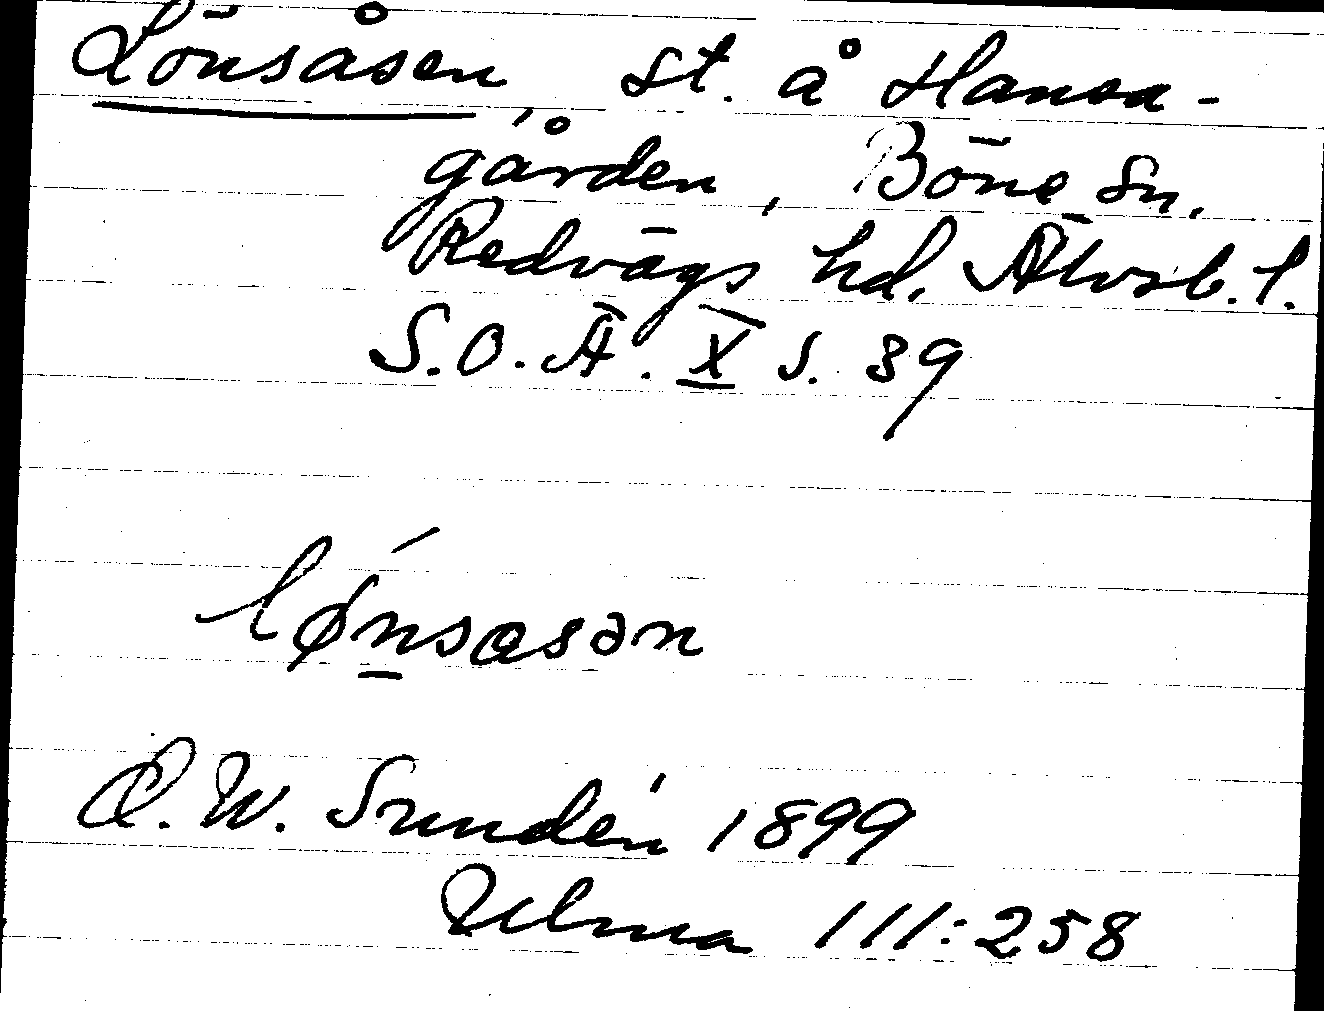 Lönsåsen, st. å Hansa-
gården, Böne sn.
Redvägs hd. Älvsb. l.
S.O.Ä. X s. 89
lǿnsasən
D. W. Sundén 1899
Ulma 111:258